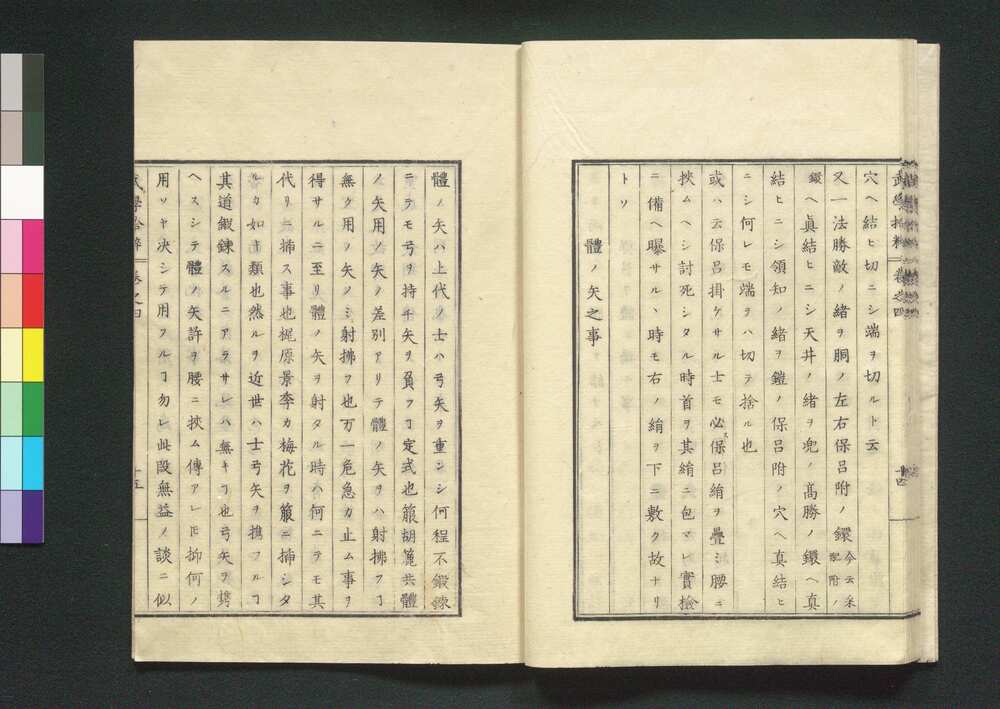 穴ヘ結ヒ切ニシ端ヲ切ルト云
又一法勝敵ノ緒ヲ胴ノ左右保呂附ノ鐶今云釆配附ノ
鐶ヘ眞結ヒニシ天井ノ緒ヲ兜ノ高勝ノ鐶ヘ真
結ヒニシ領知ノ緒ヲ鎧ノ保呂附ノ穴ヘ真結ヒ
ニシ何レモ端ヲハ切テ捨ル也
或ハ云保呂掛ケサル士モ必ス保呂絹ヲ疊シ腰ニ
挾ムヘシ討死シタル時首ヲ其絹ニ包マレ實撿
ニ備ヘ曝サルヽ時モ右ノ絹ヲ下ニ敷ク故ナリ
トソ
體ノ矢之事
體ノ矢ハ上代ノ士ハ弓矢ヲ重ンシ何程不鍛錬
ニテモ弓ヲ持チ矢ヲ負フヿ定式也箙胡簶共體
ノ矢用ノ矢ノ差別アリテ體ノ矢ヲハ射拂フヿ
無ク用ノ矢ノミ射拂フ也万一危急カ止ム事ヲ
得サルニ至リ體ノ矢ヲ射タル時ハ何ニテモ其
代リニ挿ス事也梶原景季カ梅花ヲ箙ニ挿シタ
ルカ如キ類也然ルヲ近世ハ士弓矢ヲ携フルヿ
其道鍛錬スルニアラサレハ無キヿ也弓矢ヲ携
ヘスシテ體ノ矢許ヲ腰ニ挾ム傳アレ𪜈抑何ノ
用ソヤ決シテ用フルヿ勿レ此段無益ノ談ニ似
武學拾粹 卷之四
十五